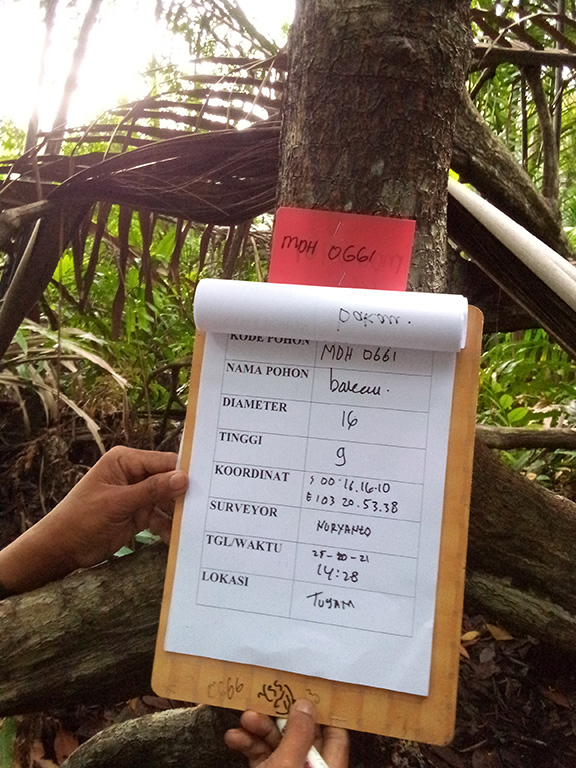 MDH 0661
bakau.
KODE POHON MDH 0661
NAMA POHON bakau.
DIAMETER 16
TINGGI 9
KOORDINAT S 00.16.16.10
E 103 20.53.38
SURVEYOR NURYANTO
TGL/WAKTU
14:28
LOKASI TUYAM